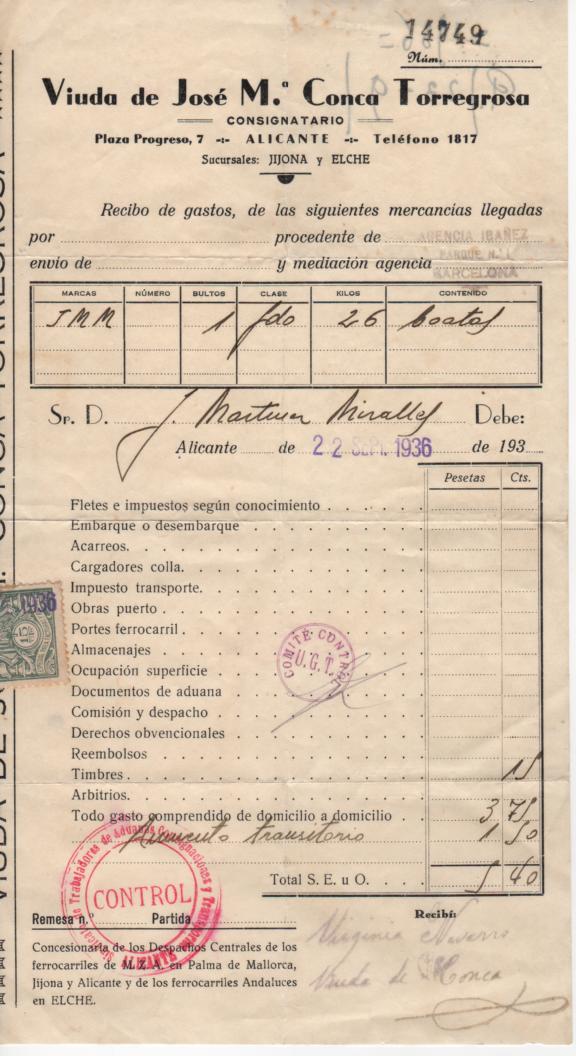 14749
Núm.
Viuda de José M.ª Conca Torregrosa
CONSIGNATARIO
Plaza Progreso, 7 -:- ALICANTE -:- Teléfono 1817
Sucursales: JIJONA y ELCHE
Recibo de gastos, de las siguientes mercancías llegadas
por procedente de AGENCIA IBAÑEZ
PARQUE N.º 1
envío de y mediación agencia BARCELONA
MARCAS NÚMERO BULTOS CLASE KILOS CONTENIDO
JMM 1 fdo 26
Sr. D. J. Martinez Miralles Debe:
Alicante de 22 SEPT. 1936 de 193
Pesetas Cts.
Fletes e impuestos según conocimiento
Embarque o desembarque
Acarreos.
Cargadores colla.
Impuesto transporte.
Obras puerto
Portes ferrocarril
Almacenajes
Ocupación superficie
Documentos de aduana
Comisión y despacho
Derechos obvencionales
Reembolsos
Timbres. 15
Arbitrios.
Todo gasto comprendido de domicilio a domicilio 3 75
Aumento transitorio 1 50
Total S. E. u O. 5 40
COMITÉ CONTROL
U.G.T.
1936
Sindicato Trabajadores de Aduanas Consignaciones y Transportes
CONTROL
ALICANTE
Remesa n.º Partida
Recibí:
Virginia Navarro
Viuda de Conca
Concesionaria de los Despachos Centrales de los
ferrocarriles de M. Z. A. en Palma de Mallorca,
Jijona y Alicante y de los ferrocarriles Andaluces
en ELCHE.